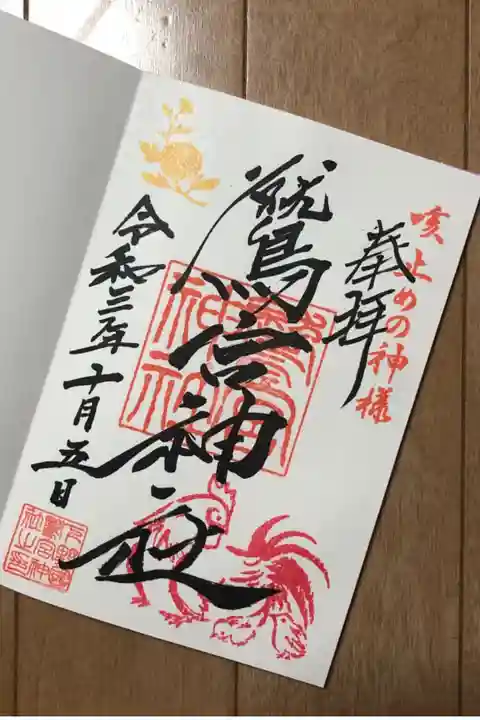 咳止めの神様
奉拝
鷲宮神社
令和三年十月五日